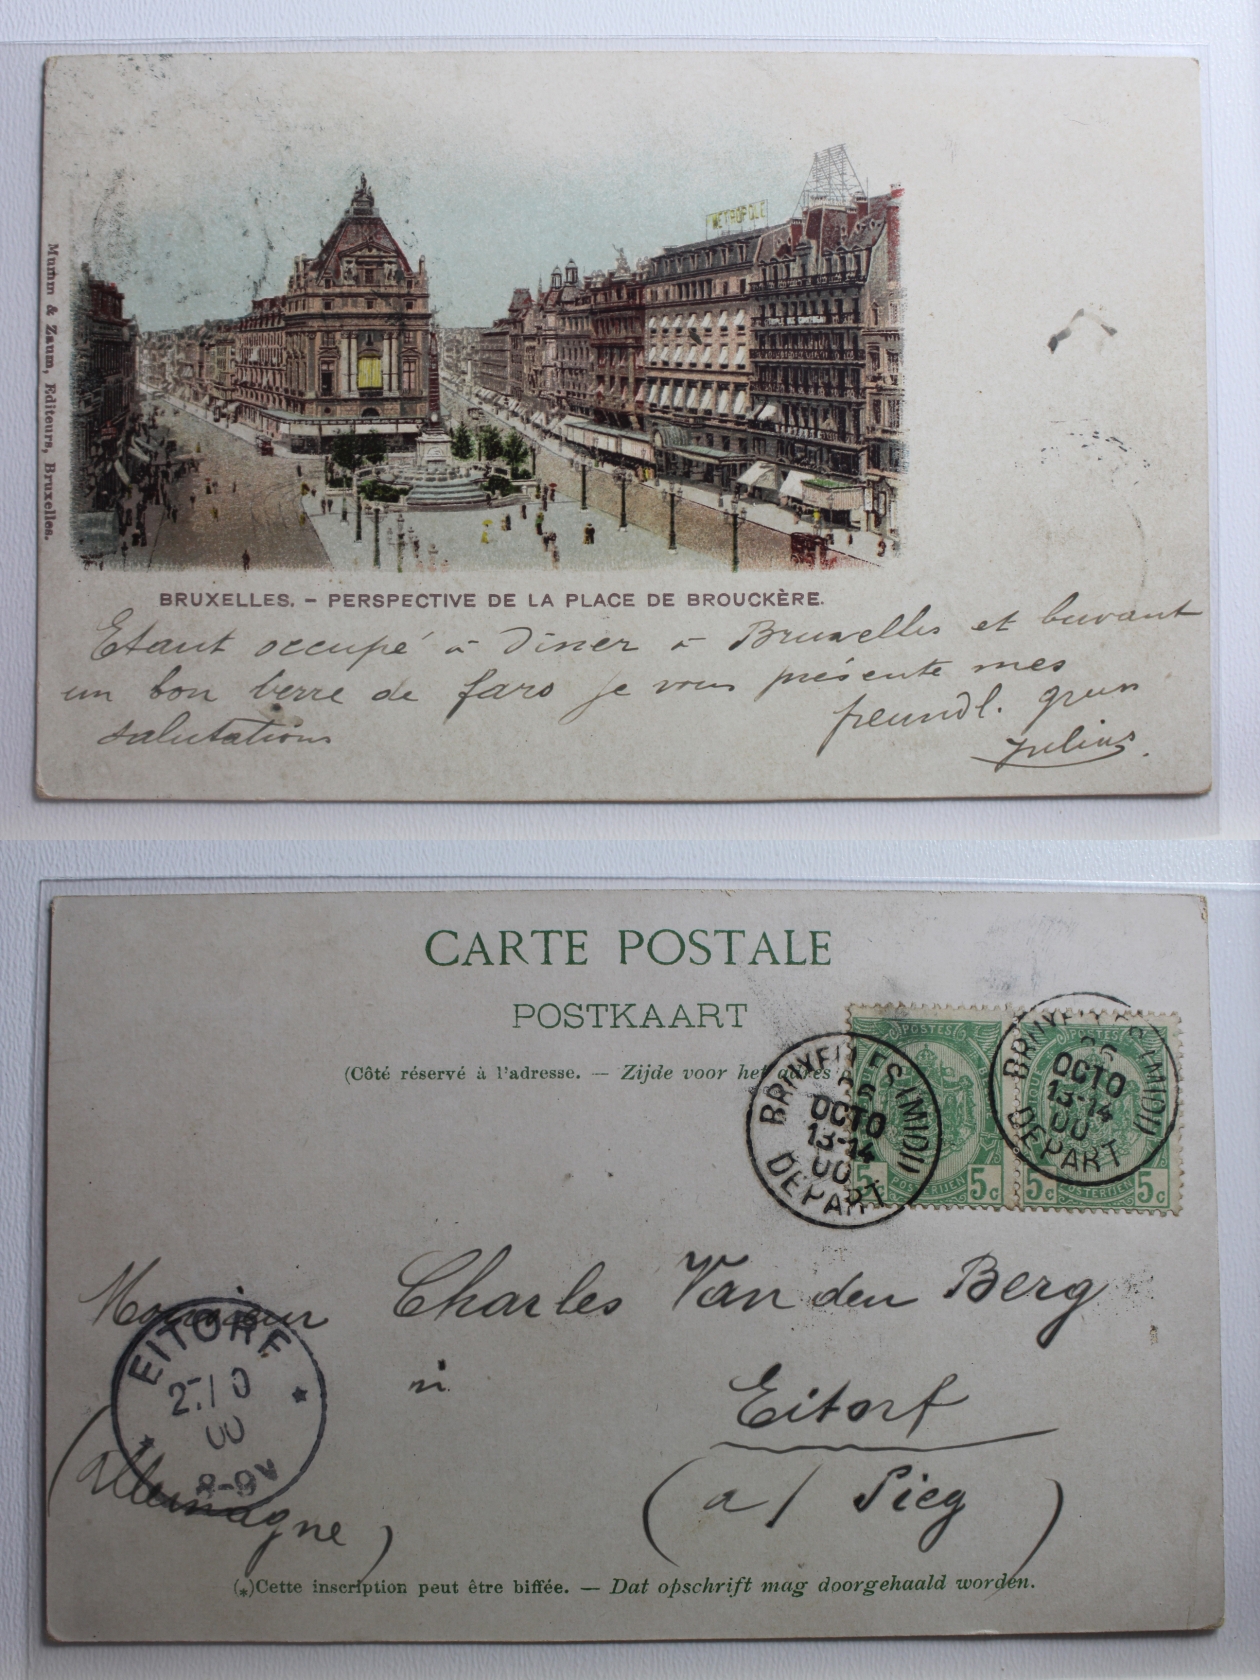 METROPOLE
Mumm & Zaum, Editeurs, Bruxelles.
BRUXELLES. – PERSPECTIVE DE LA PLACE DE BROUCKÈRE.
Etant occupé à Diner à Bruxelles et buvant
un bon verre de faro je vous présente mes
salutations
freundl. gruss
Julius.
CARTE POSTALE
POSTKAART
(Côté réservé à l'adresse. — Zijde voor het adres
POSTES
5c POSTERIJEN 5c
POSTES
5c POSTERIJEN 5c
BRUXELLES (MIDI)
26
OCTO
13-14
00
DEPART
BRUXELLES (MIDI)
26
OCTO
13-14
00
DEPART
Monsieur Charles Van den Berg
à
Eitorf
(a/ Sieg)
(Allemagne)
EITORF
27/10
00
8-9V
(*)Cette inscription peut être biffée. — Dat opschrift mag doorgehaald worden.